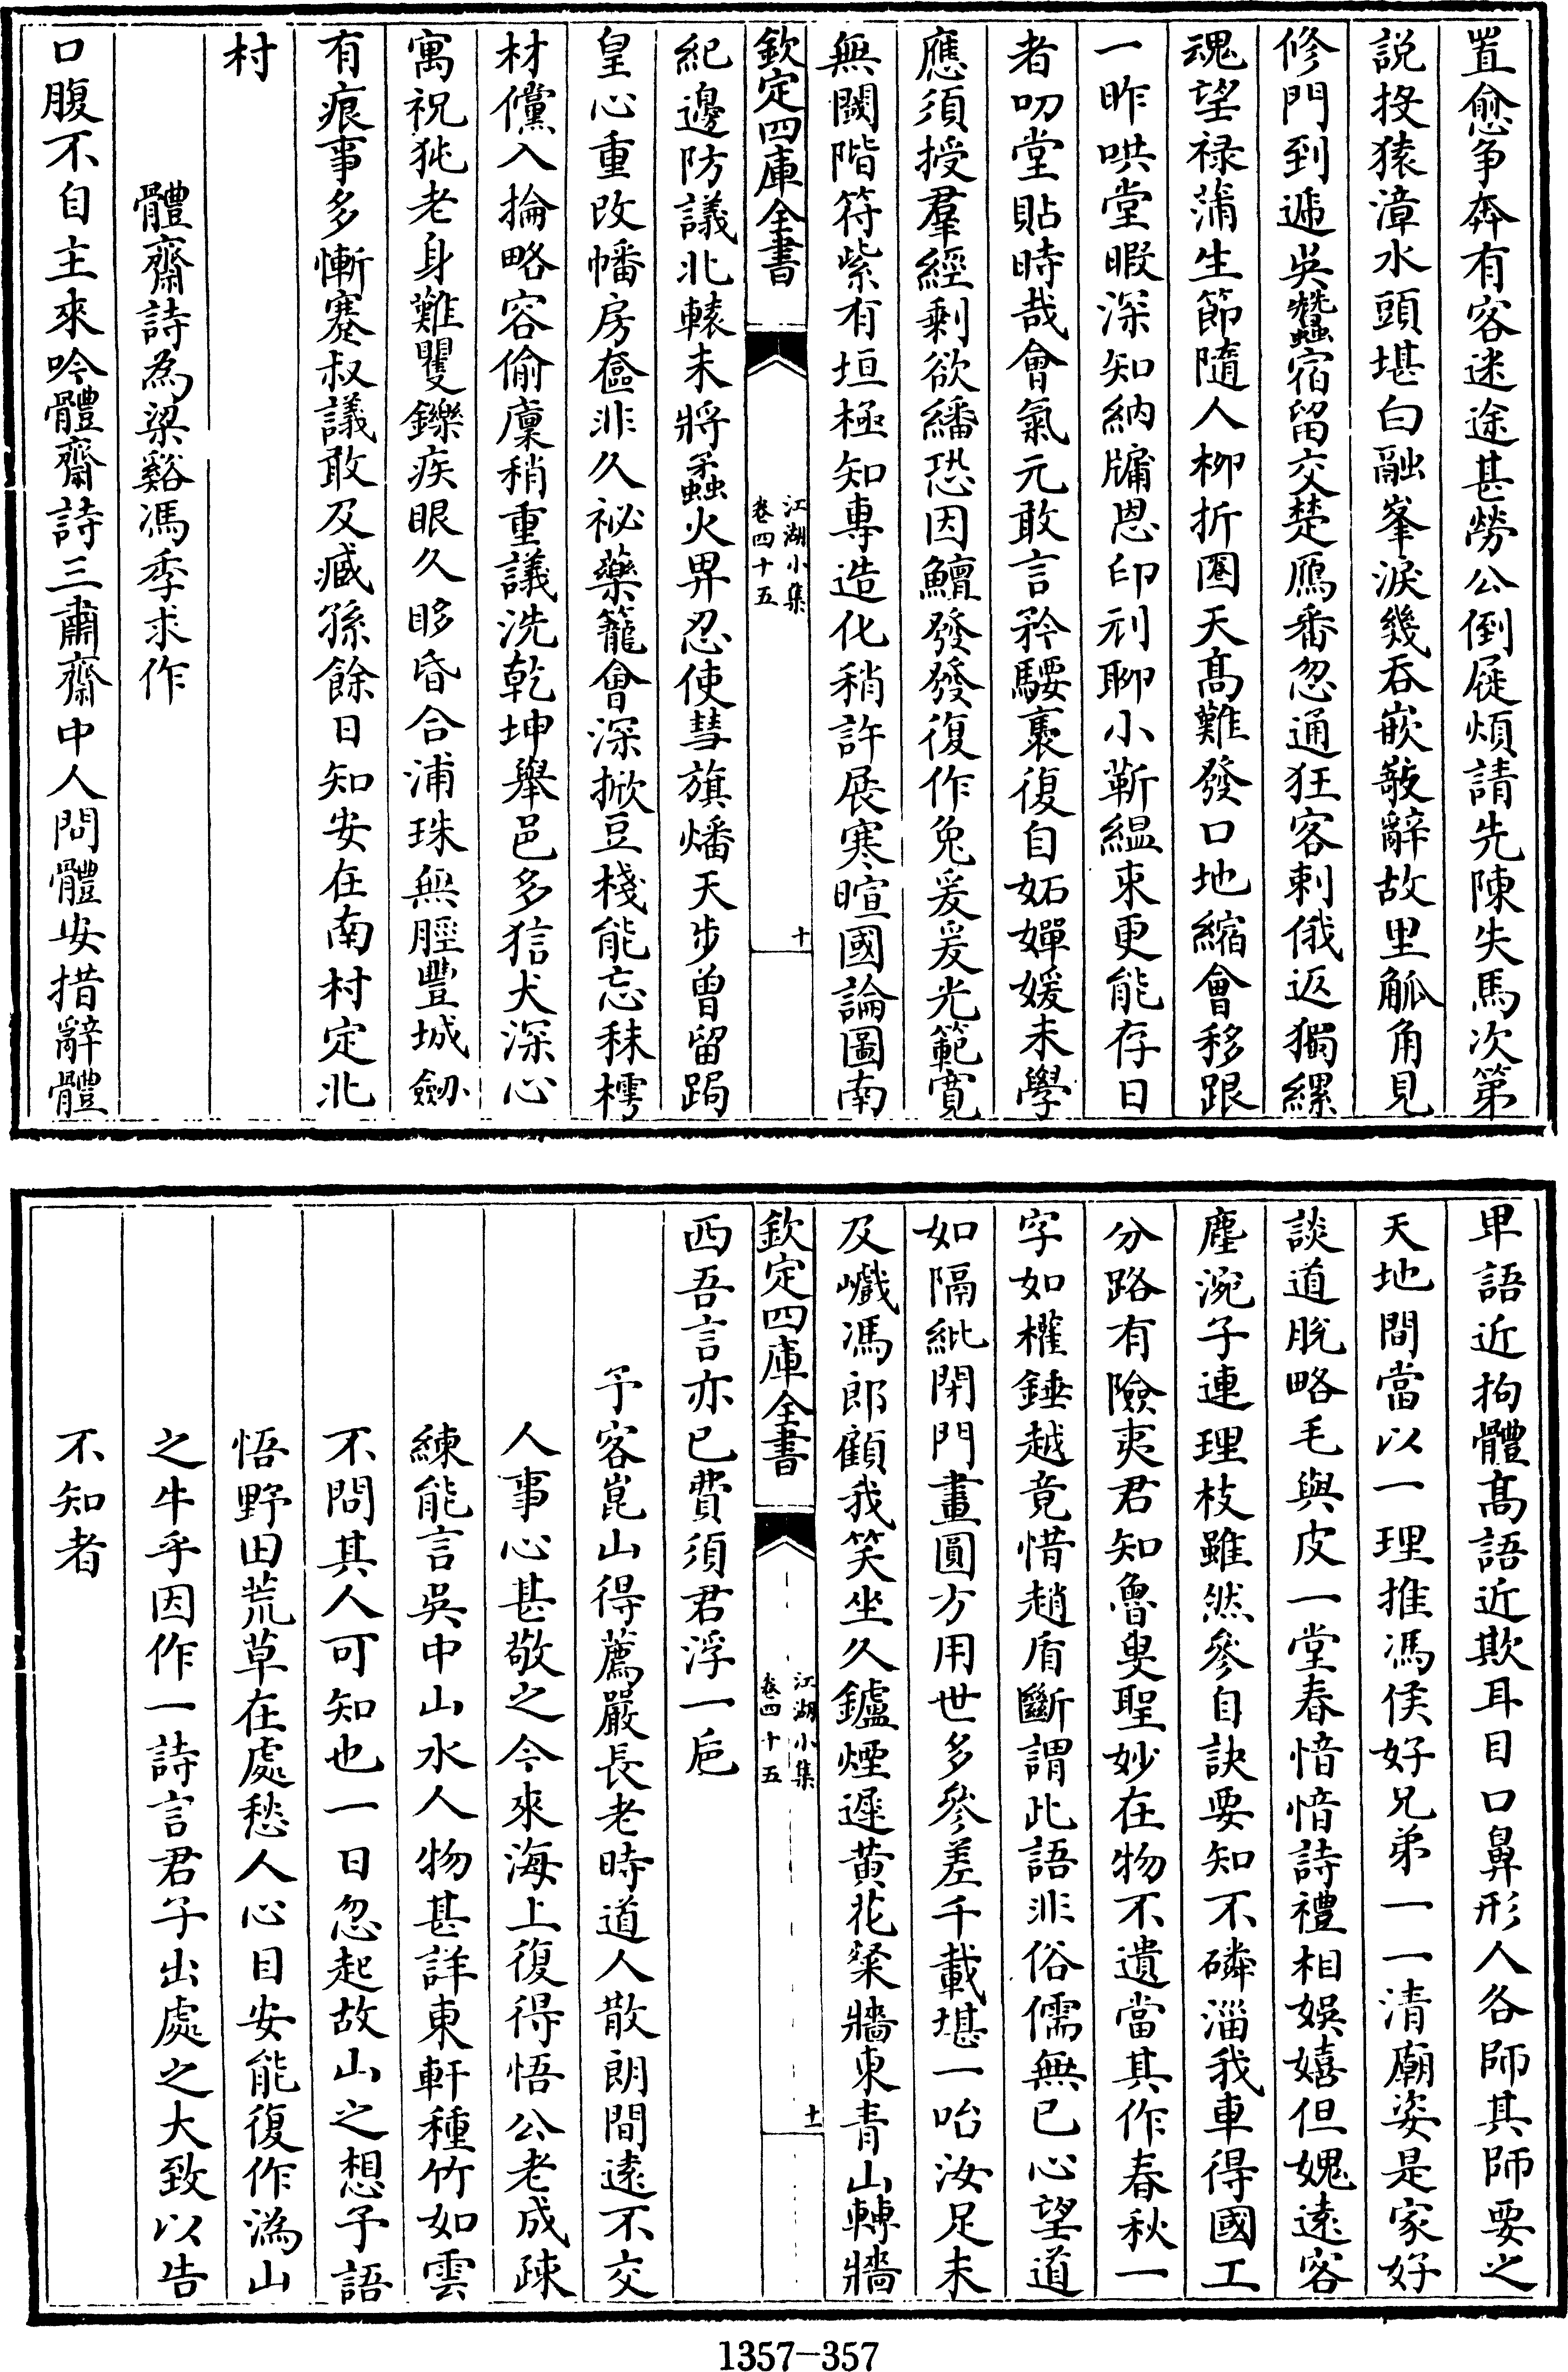 置愈争奔有客迷途甚勞公倒屣煩請先陳失馬次第
説投猿漳水頭堪白融峯淚幾吞嵌敧辭故里觚角見
修門到遞吳蠶宿留交楚鴈番忽通狂客刺俄返獨縲
魂望禄蒲生節隨人柳折圈天髙難發口地縮會移跟
一昨哄堂暇深知納牖恩印刓聊小蘄緼束更能存日
者叨堂貼時哉會氣元敢言矜騕褭復自妬嬋媛未學
應須授羣經剩欲繙恐因鱣發發復作兔爰爰光範寛
無閾階符紫有垣極知專造化稍許展寒暄國論圖南
欽定四庫全書
江湖小集
卷四十五
十
紀邊防議北轅未將蟊火畀忍使彗旗燔天步曾留跼
皇心重改幡房奩非久祕藥籠會深掀豆棧能忘秣樗
材儻入掄略容偷廩稍重議洗乾坤舉邑多狺犬深心
寓祝㹠老身難矍鑠疾眼久眵昏合浦珠無脛豐城劒
有痕事多慚蹇叔議敢及臧孫餘日知安在南村定北
村
體齋詩為梁谿馮季求作
口腹不自主來吟體齋詩三肅齋中人問體安措辭體
卑語近拘體髙語近欺耳目口鼻形人各師其師要之
天地間當以一理推馮侯好兄弟一一清廟姿是家好
談道脫略毛與皮一堂春愔愔詩禮相娛嬉但媿遠客
塵涴子連理枝雖然參自訣要知不磷淄我車得國工
分路有險夷君知魯叟聖妙在物不遺當其作春秋一
字如權錘越竟惜趙盾斷謂此語非俗儒無已心望道
如隔紕閉門畫圓方用世多參差千載堪一咍汝足未
及巇馮郎顧我笑坐久鑪煙遲黄花粲牆東青山轉牆
欽定四庫全書
江湖小集
卷四十五
十一
西吾言亦已費須君浮一卮
予客崑山得薦嚴長老時道人散朗間遠不交
人事心甚敬之今來海上復得悟公老成疎
練能言吳中山水人物甚詳東軒種竹如雲
不問其人可知也一日忽起故山之想予語
悟野田荒草在處愁人心目安能復作溈山
之牛乎因作一詩言君子出處之大致以告
不知者
1357-357